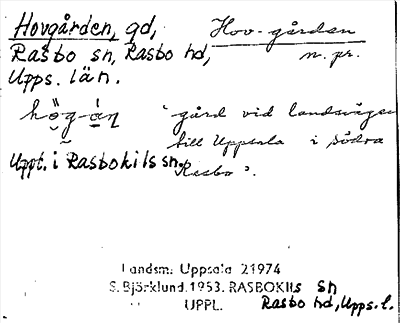 Hovgården, gd, Hov-gården
Rasbo sn, Rasbo hd, n. pr.
Upps. län.
'gård vid landsvägen
till Uppsala i södra
Uppt. i Rasbokils sn. Rasbo'.
Landsm. Uppsala 21974
S. Björklund. 1953. RASBOKILS sn
UPPL. Rasbo hd, Upps. l.